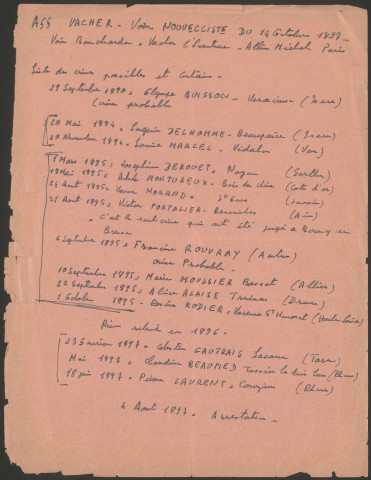 Aff VACHER - Voir NOUVELLISTE DU 14 Octobre 1897 -
Voir Bouchardon - Vacher l'Eventreur - Albin Michel Paris
Liste des crimes possibles et certains -
29 Septembre 1890 = Olympe BUISSON - Varacieux (Isère)
Crime probable
20 Mai 1894 = Eugénie DELHOMME - Beaurepaire (Isère)
20 Novembre 1894 = Louise MARCEL - Vidauban (Var)
1 Mars 1895 = Josephine DEROUET = Noyen (Sarthe)
12 Mai 1895 = Adèle MORTUREUX = Bois du chêne (Côte d'or)
24 Aout 1895 = Veuve MORAND = St Ours (Savoie)
31 Aout 1895 = Victor PORTALIER - Benonces (Ain)
= C'est le seul crime qui ait été jugé à Bourg en
Bresse
6 Septembre 1895 = Francine ROUVRAY
crime Probable -
10 Septembre 1895 = Marie MOUSSIER Busset (Allier)
22 Septembre 1895 = Aline ALAISE Truinas (Drome)
1 Octobre 1895 - Rosine RODIER - Varenne St Honorat (Haute Loire)
Rien relevé en 1896 -
23 Février 1897 = Célestin GAUTRAIS Lacaune (Tarn)
Mai 1897 = Claudius BEAUPIED Tassin la demi Lune (Rhône)
18 juin 1897 - Pierre LAURENT = Courzieu (Rhône)
4 Aout 1897 - Arrestation -